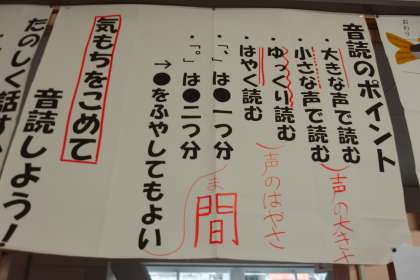 音読のポイント
・大きな声で読む
・小さな声で読む
声の大きさ
・ゆっくり読む
・はやく読む
声のはやさ
・「、」は●一つ分
・「。」は●二つ分
→●をふやしてもよい
ま
間
気もちをこめて
音読しよう！
たのしく話す
おわり